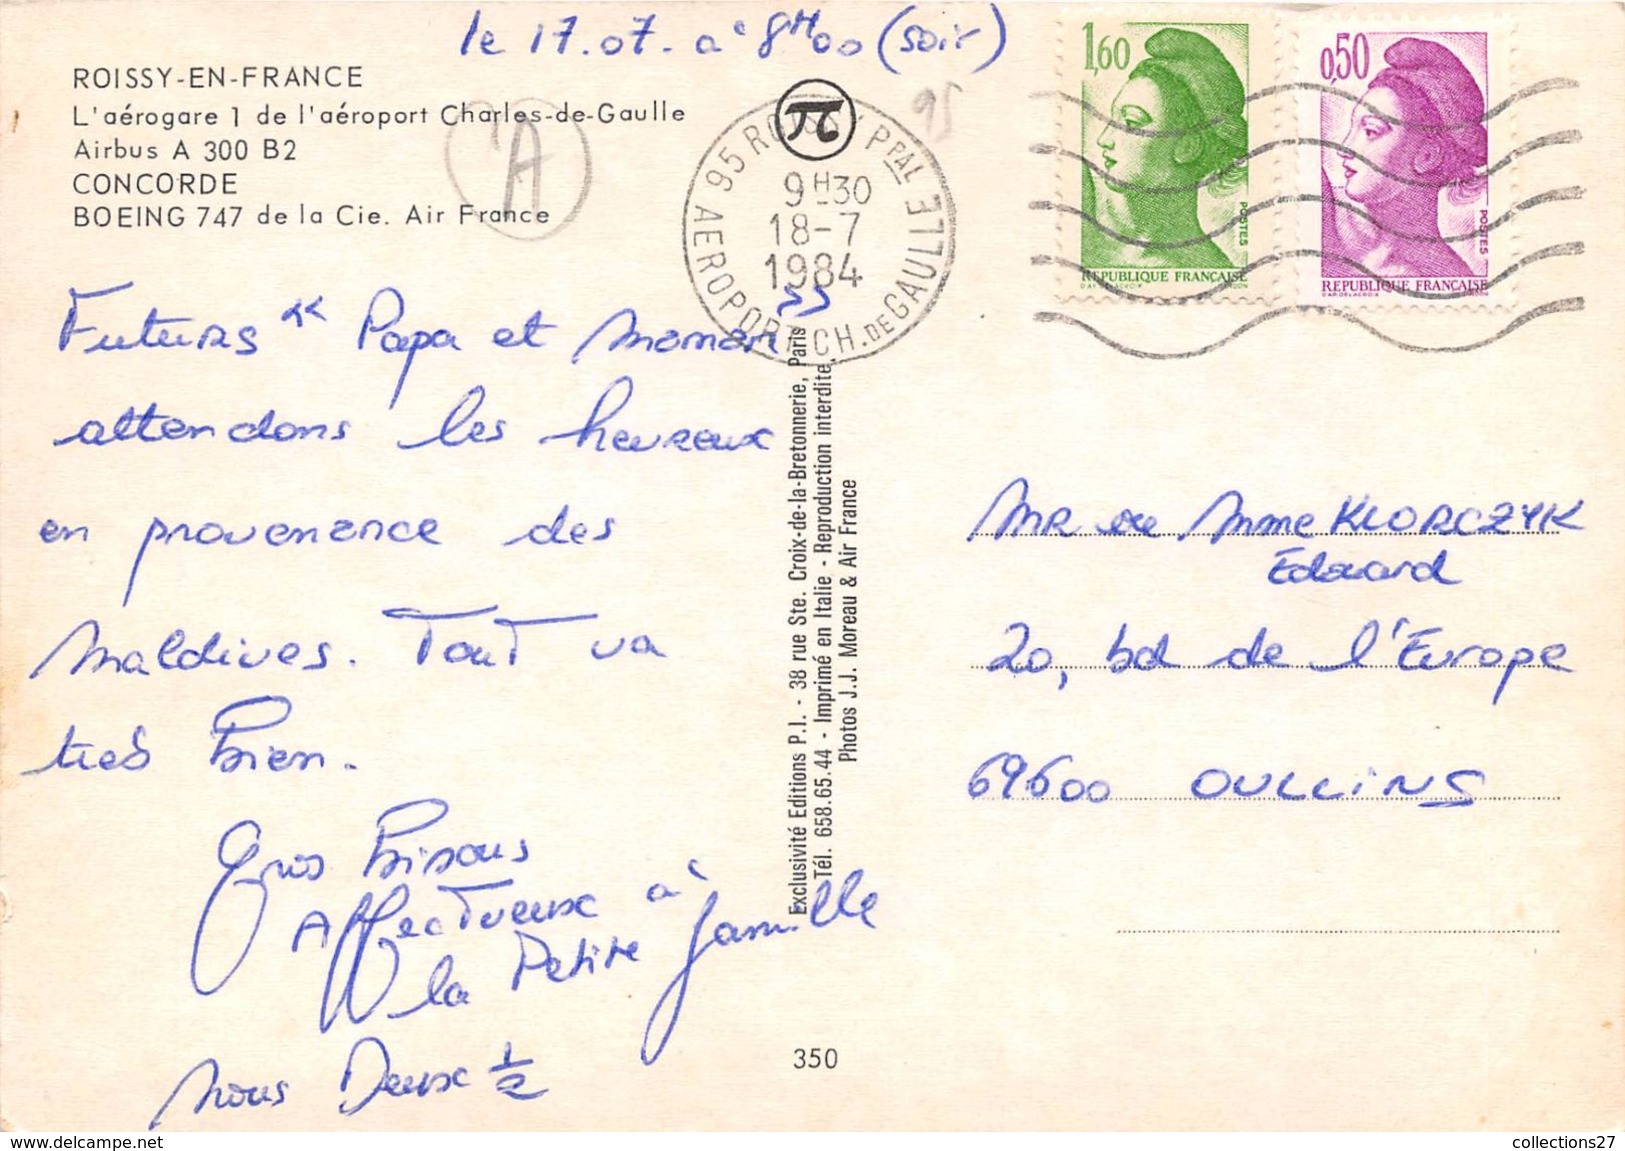 le 17.07. a 8H00 (soir)
ROISSY-EN-FRANCE
L'aérogare 1 de l'aéroport Charles-de-Gaulle
Airbus A 300 B2
CONCORDE
BOEING 747 de la Cie. Air France
A
95
95 ROISSY PPAL
AEROPORT CH. DE GAULLE
9H30
18-7
1984
1,60
POSTES
REPUBLIQUE FRANÇAISE
0,50
POSTES
REPUBLIQUE FRANÇAISE
Futurs Papa et Maman
attendons les heureux
en provenance des
Maldives. Tout va
très Bien.
Gros Bisous
Affectueux à
la Petite famille
Nous Deux 1/2
Exclusivité Editions P.I. - 38 rue Ste. Croix-de-la-Bretonnerie, Paris
Tél. 658.65.44 - Imprimé en Italie - Reproduction interdite.
Photos J.J. Moreau & Air France
MR et Mme KLORCZYK
Edouard
20, bd de l'Europe
69600 OULLINS
350
collections27